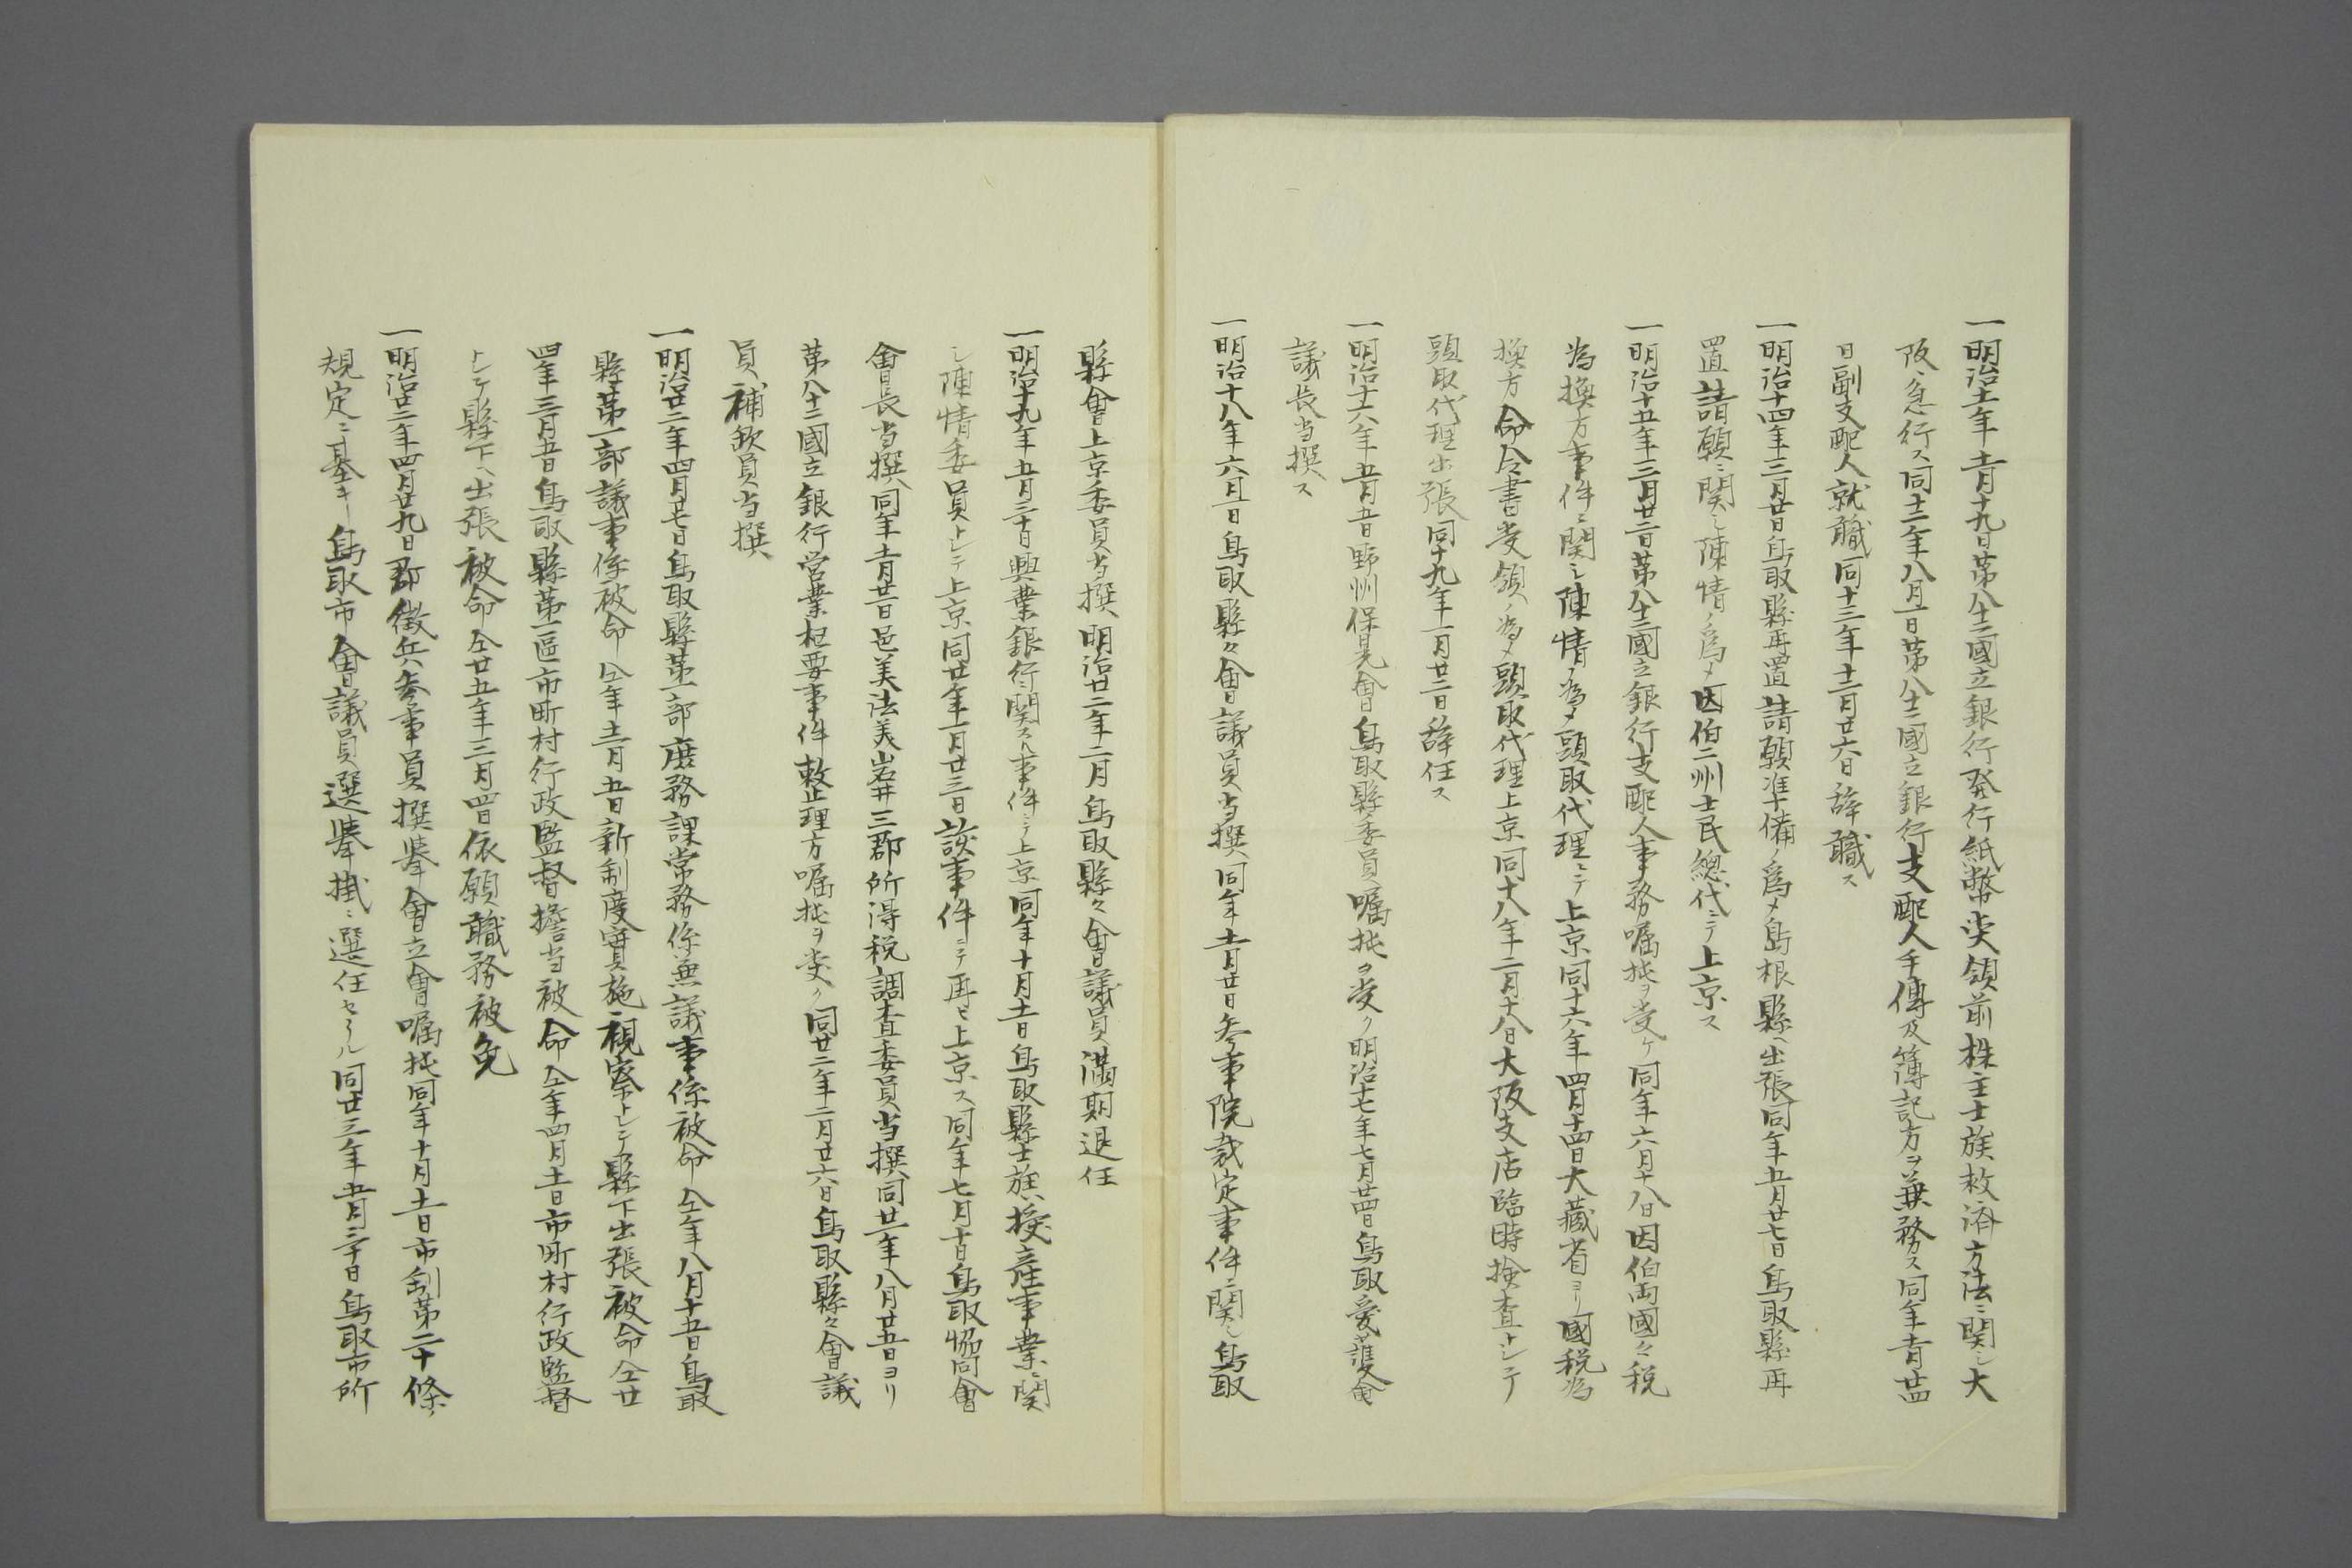 一明治十一年十一月十九日第八十二國立銀行発行紙幣受領前株主士族救済方法ニ関シ大
阪ヘ急行ス同十二年八月一日第八十二國立銀行支配人手傳及簿記方ヲ兼務ス同年十一月廿四
日副支配人就職同十三年十二月廿六日辞職ス
一明治十四年三月廿日鳥取縣再置請願准備ノ爲メ島根縣ヘ出張同年五月廿七日鳥取縣再
置請願ニ関シ陳情ノ爲メ因伯二州士民總代ニテ上京ス
一明治十五年三月廿二日第八十二國立銀行支配人事務嘱托ヲ受ケ同年六月十八日因伯両國々税
為換方事件ニ関シ陳情ノ為メ頭取代理ニテ上京同十六年四月十四日大藏省ヨリ國税為
換方命令書受領ノ為メ頭取代理上京同十八年二月十八日大阪支店臨時撿査トシテ
頭取代理出張同十九年一月廿二日辞任ス
一明治十六年五月五日野州保晃會鳥取縣委員嘱托ヲ受ク明治十七年七月廿四日鳥取愛護會
議長当撰ス
一明治十八年六月一日鳥取縣々會議員当撰同年十一月廿日参事院裁定事件ニ関シ鳥取
縣會上京委員当撰明治廿二年二月鳥取縣々會議員満期退任
一明治十九年五月三十日興業銀行ニ関スル事件ニテ上京同年十月十一日鳥取縣士族ヘ授産事業ニ関
シ陳情委員トシテ上京同廿年一月廿三日該事件ニテ再ヒ上京ス同年七月十日鳥取協同會
會長当撰同年十一月廿一日邑美法美岩井三郡所得税調査委員当撰同廿一年八月廿五日ヨリ
第八十二國立銀行営業枢要事件整理方嘱托ヲ受ク同廿二年二月廿六日鳥取縣々會議
員補欽員当撰
一明治廿二年四月廿七日鳥取縣第一部庶務課常務係兼議事係被命仝年八月十五日鳥取
縣第一部議事係被命仝年十二月五日新制度實施視察トシテ縣下出張被命仝廿
四年三月五日鳥取縣第一區市町村行政監督擔当被命仝年四月十一日市町村行政監督
トシテ縣下ヘ出張被命仝廿五年三月四日依願職務被免
一明治廿二年四月廿九日郡徴兵参事員撰擧會立會嘱托同年十月十一日市制第二十條ノ
規定ニ基キ鳥取市會議員選擧掛ニ選任セラル同廿三年五月三十日鳥取市所